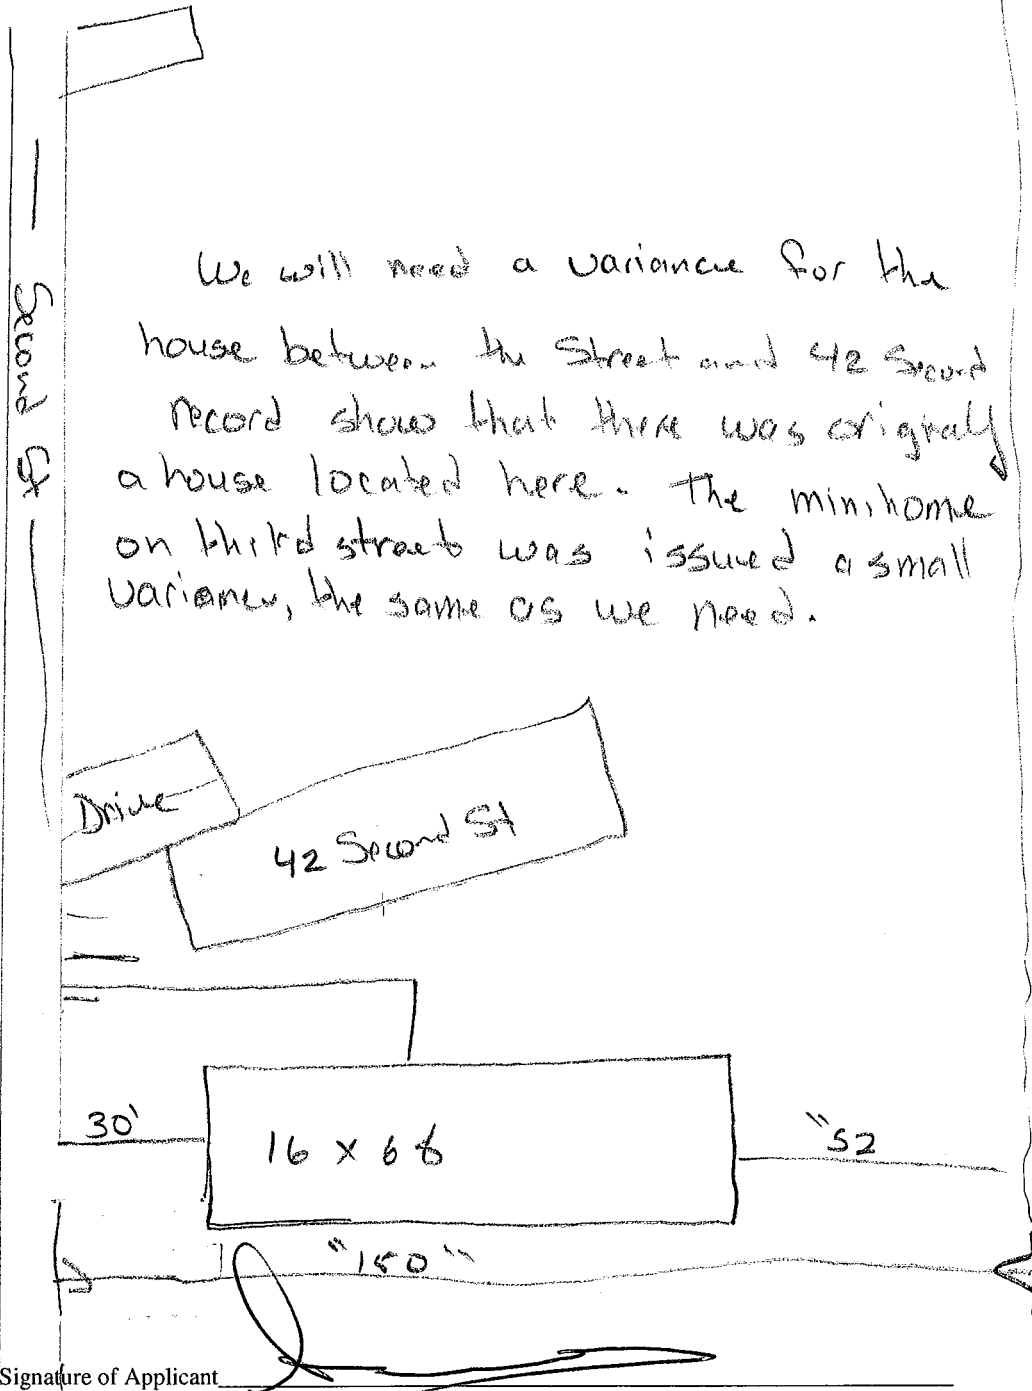 Second St
We will need a variance for the
house between the Street and 42 Second
record show that there was originaly
a house located here. The minihome
on thitd street was issued a small
variance, the same as we need.
Drive
42 Second St
30'
16 x 68
"52
"150"
Signature of Applicant